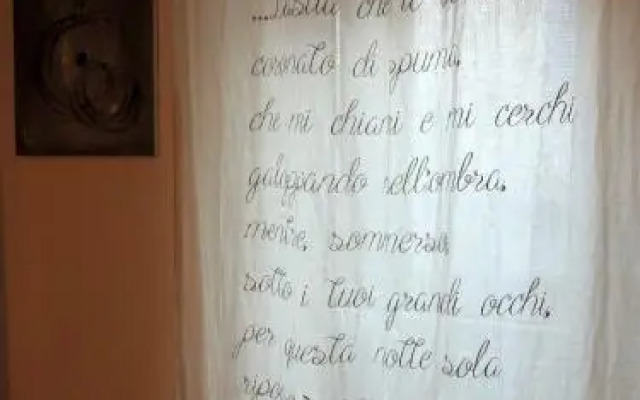 ...Lascia che il
coronato di spuma,
che mi chiami e mi cerchi
galoppando nell'ombra,
mentre, sommerso
sotto i tuoi grandi occhi,
per questa notte sola